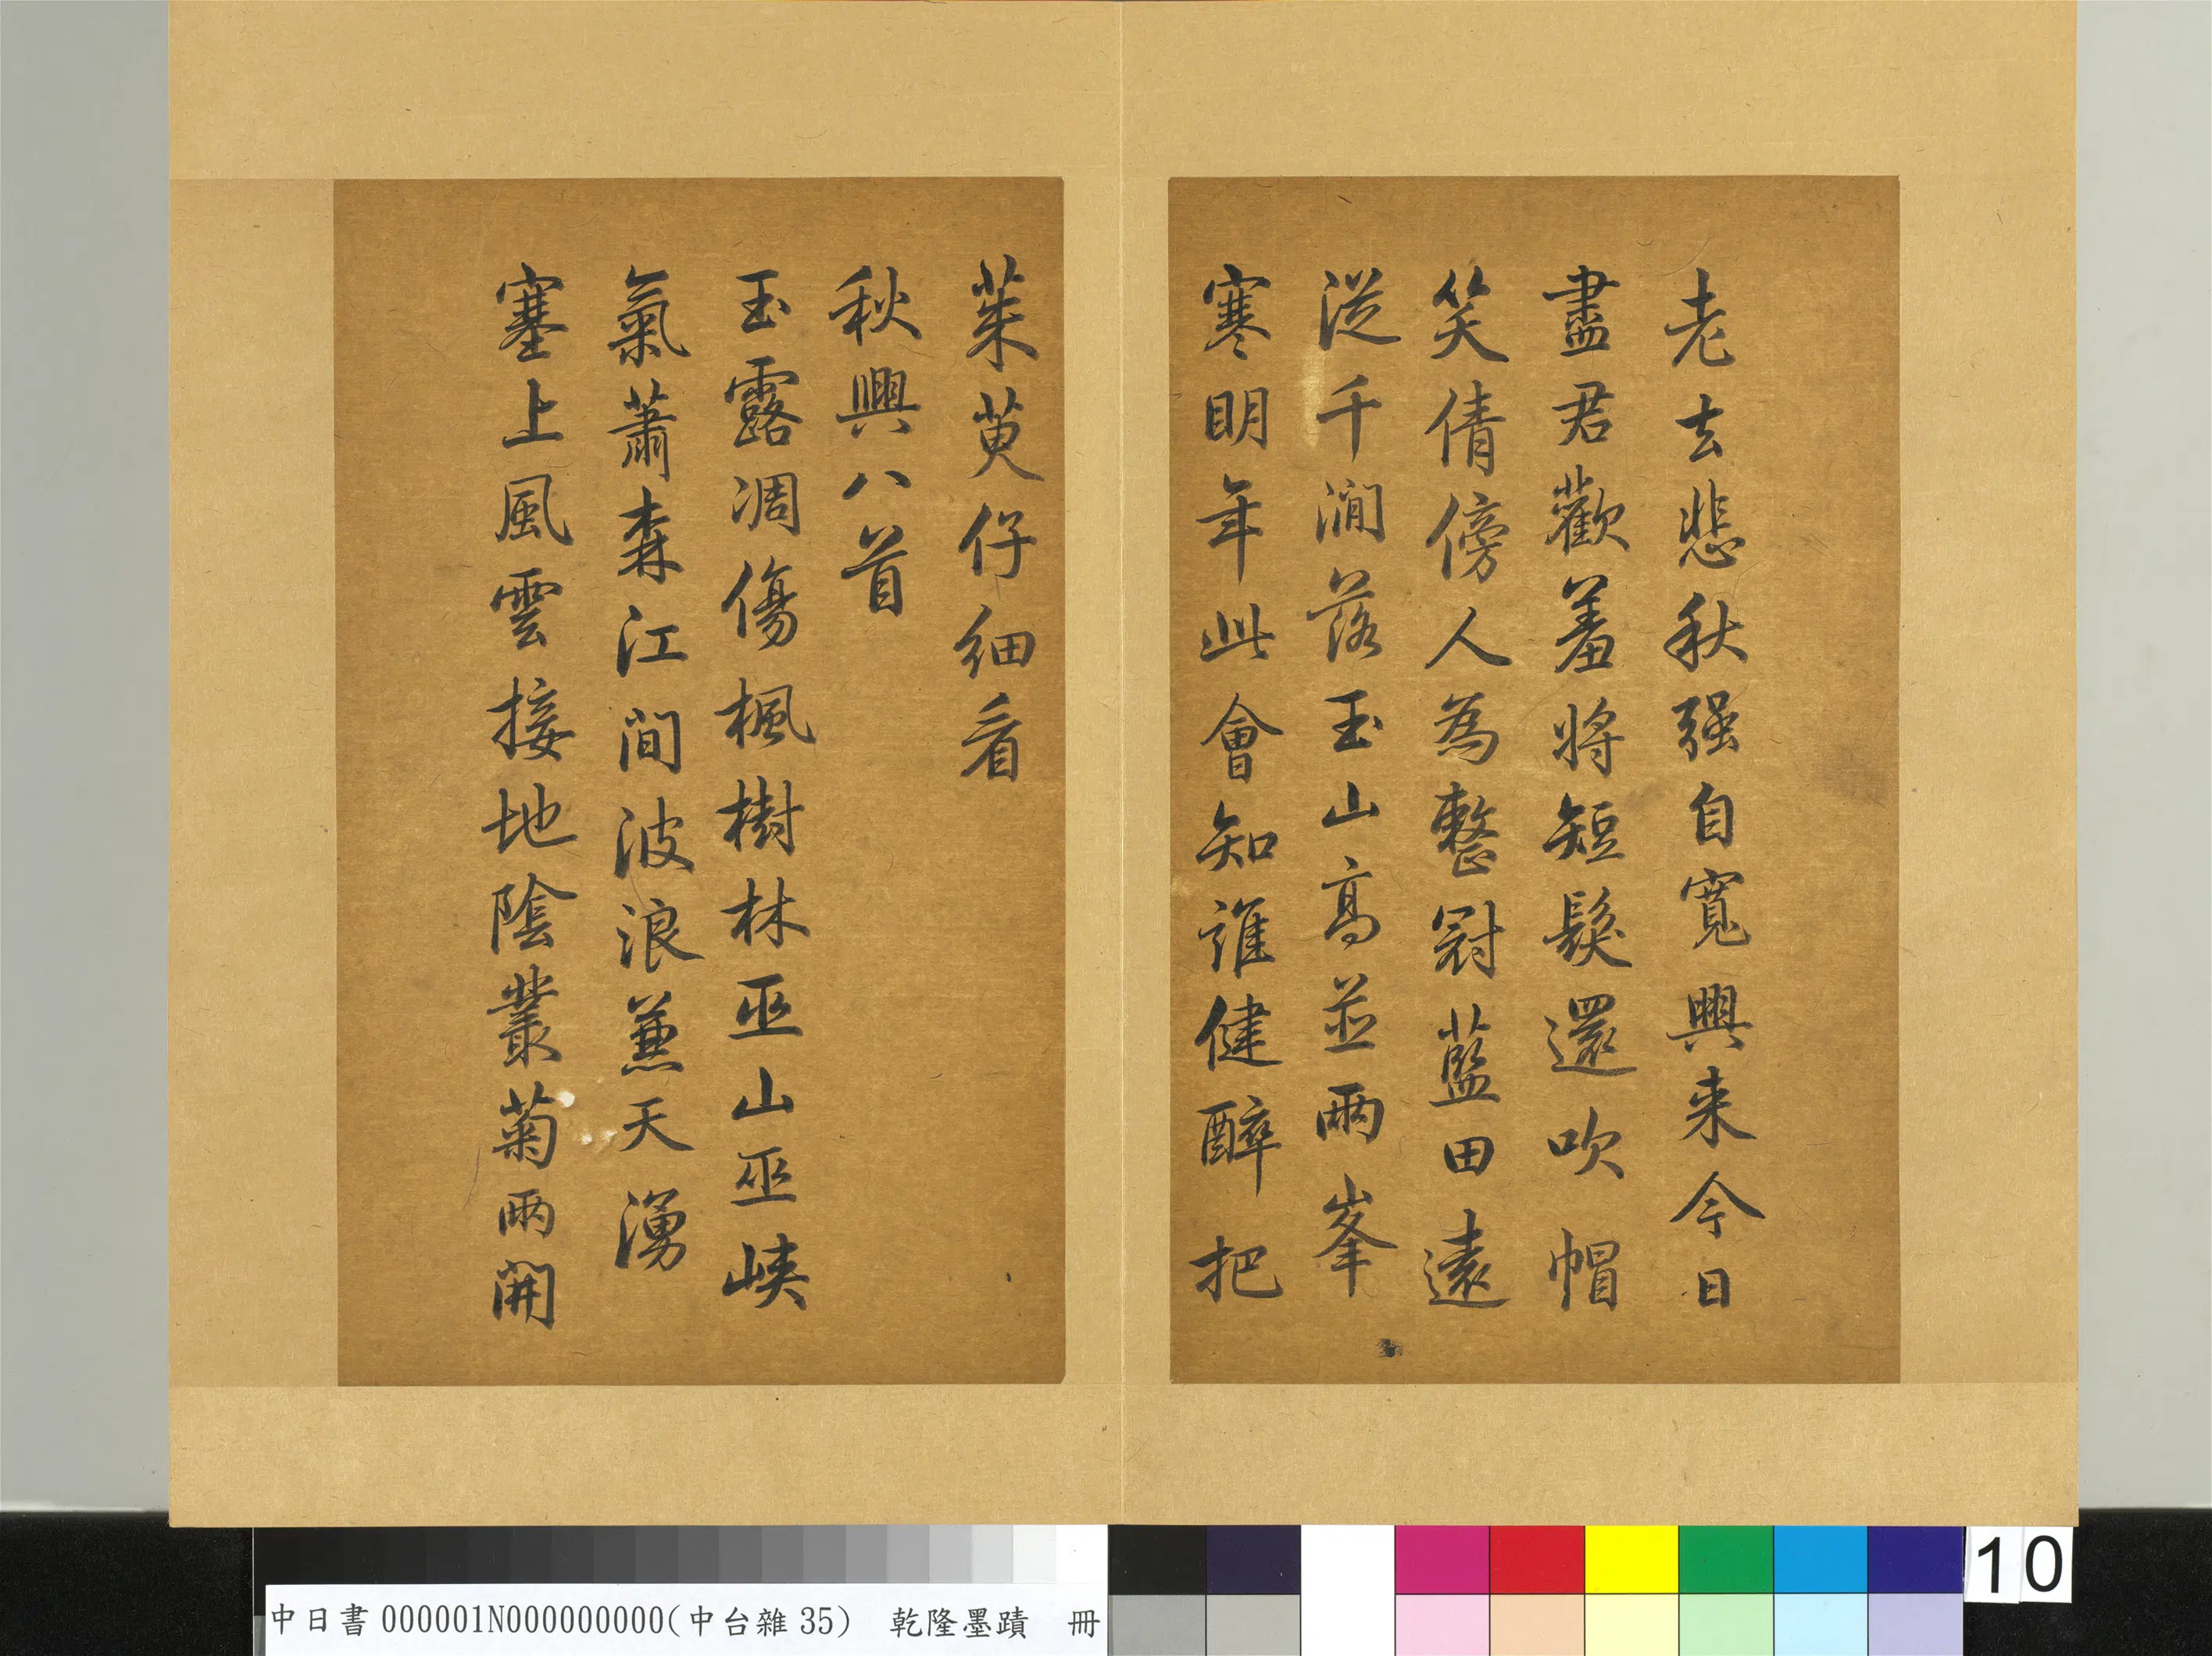 老去悲秋强自寬興来今日
盡君歡羞將短髮還吹帽
笑倩傍人為整冠藍田遠
從千澗落玉山高並兩峯
寒明年此會知誰健醉把
茱萸仔細看
秋興八首
玉露凋傷楓樹林巫山巫峽
氣蕭森江間波浪兼天湧
塞上風雲接地陰叢菊兩開
中日書000001N000000000(中台雜35) 乾隆墨蹟 冊
10